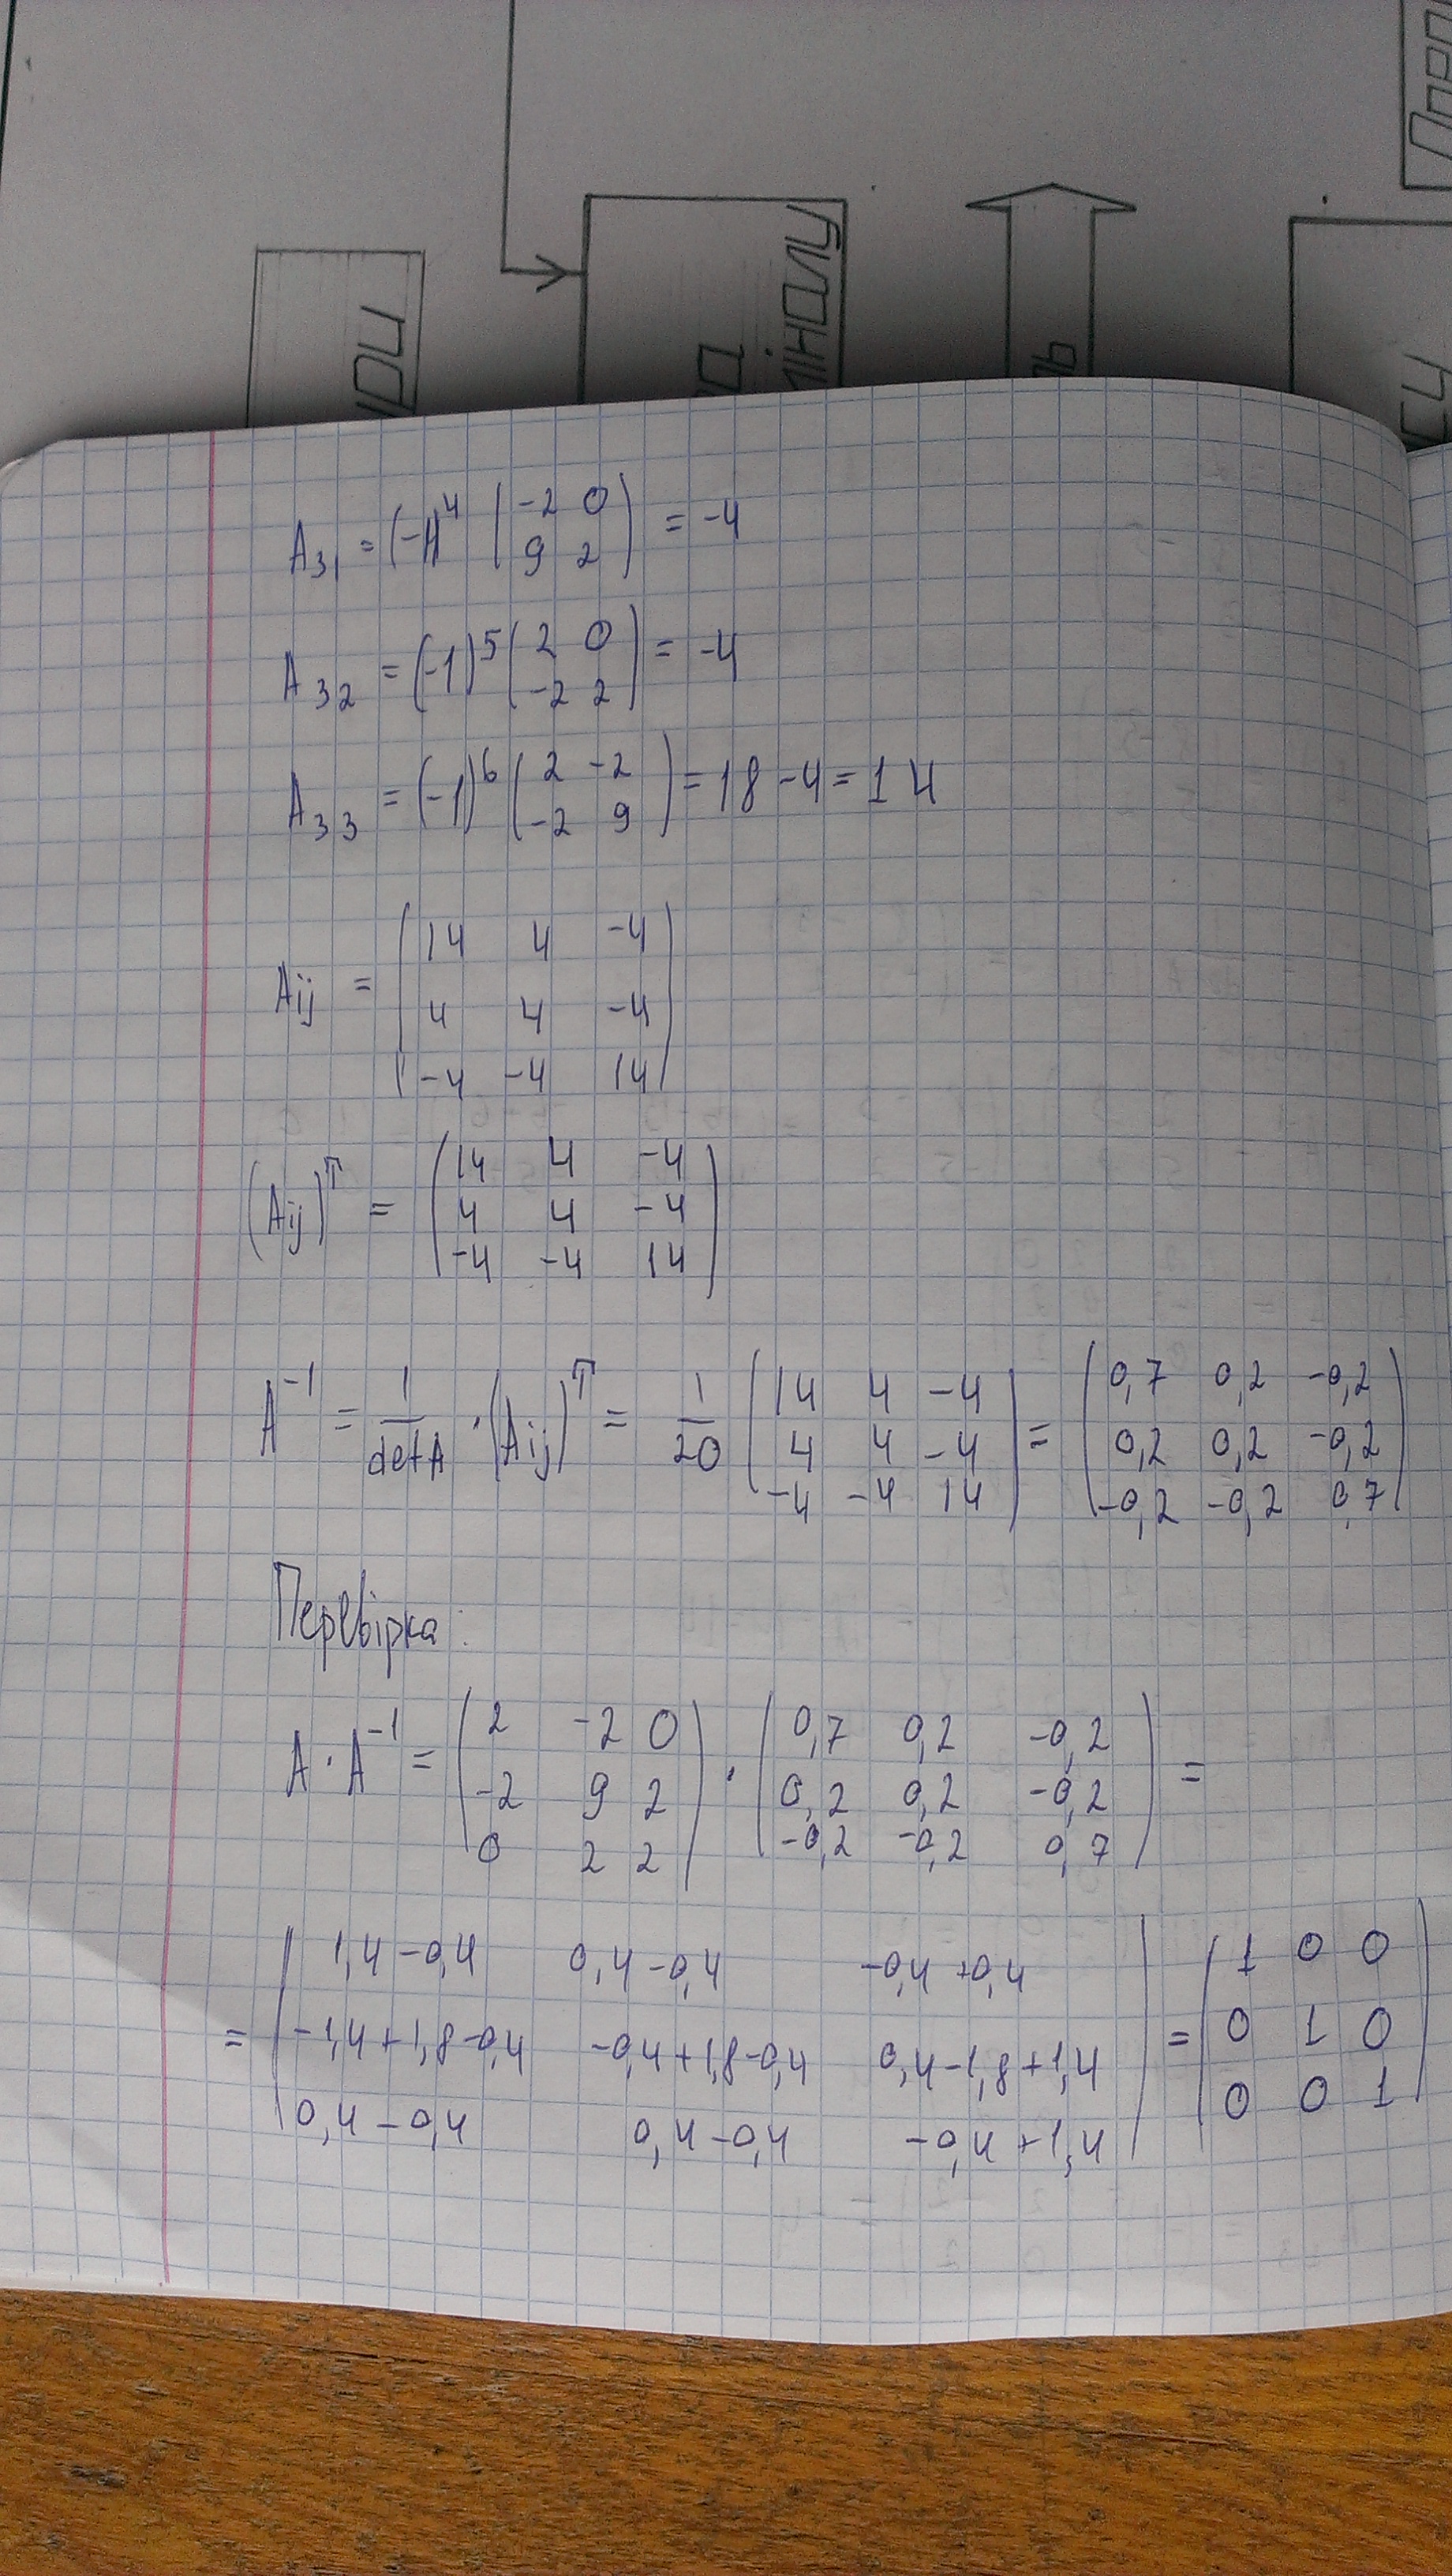 міналу
A₃₁ = (-1)⁴ (-2 0
9 2) = -4
A₃₂ = (-1)⁵ (2 0
-2 2) = -4
A₃₃ = (-1)⁶ (2 -2
-2 9) = 18 - 4 = 14
Aij = (14 4 -4
4 4 -4
-4 -4 14)
(Aij)ᵀ = (14 4 -4
4 4 -4
-4 -4 14)
A⁻¹ = 1/detA · (Aij)ᵀ = 1/20 (14 4 -4
4 4 -4
-4 -4 14) = (0,7 0,2 -0,2
0,2 0,2 -0,2
-0,2 -0,2 0,7)
Перевірка:
A · A⁻¹ = (2 -2 0
-2 9 2
0 2 2) · (0,7 0,2 -0,2
0,2 0,2 -0,2
-0,2 -0,2 0,7) =
= (1,4-0,4 0,4-0,4 -0,4+0,4
-1,4+1,8-0,4 -0,4+1,8-0,4 0,4-1,8+1,4
0,4-0,4 0,4-0,4 -0,4+1,4) = (1 0 0
0 1 0
0 0 1)